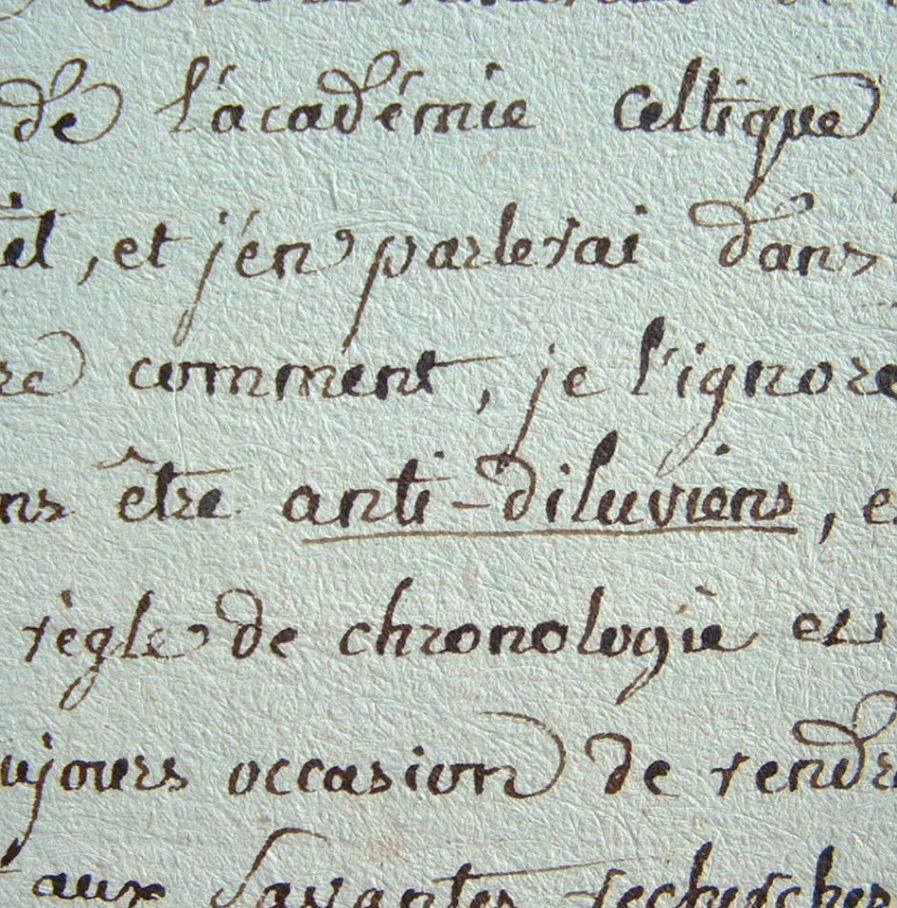 de l'académie celtique
et j'en parlerai dans
comment, je l'ignore
être anti-diluviens,
règle de chronologie et
occasion de rendr
aux savantes recherches